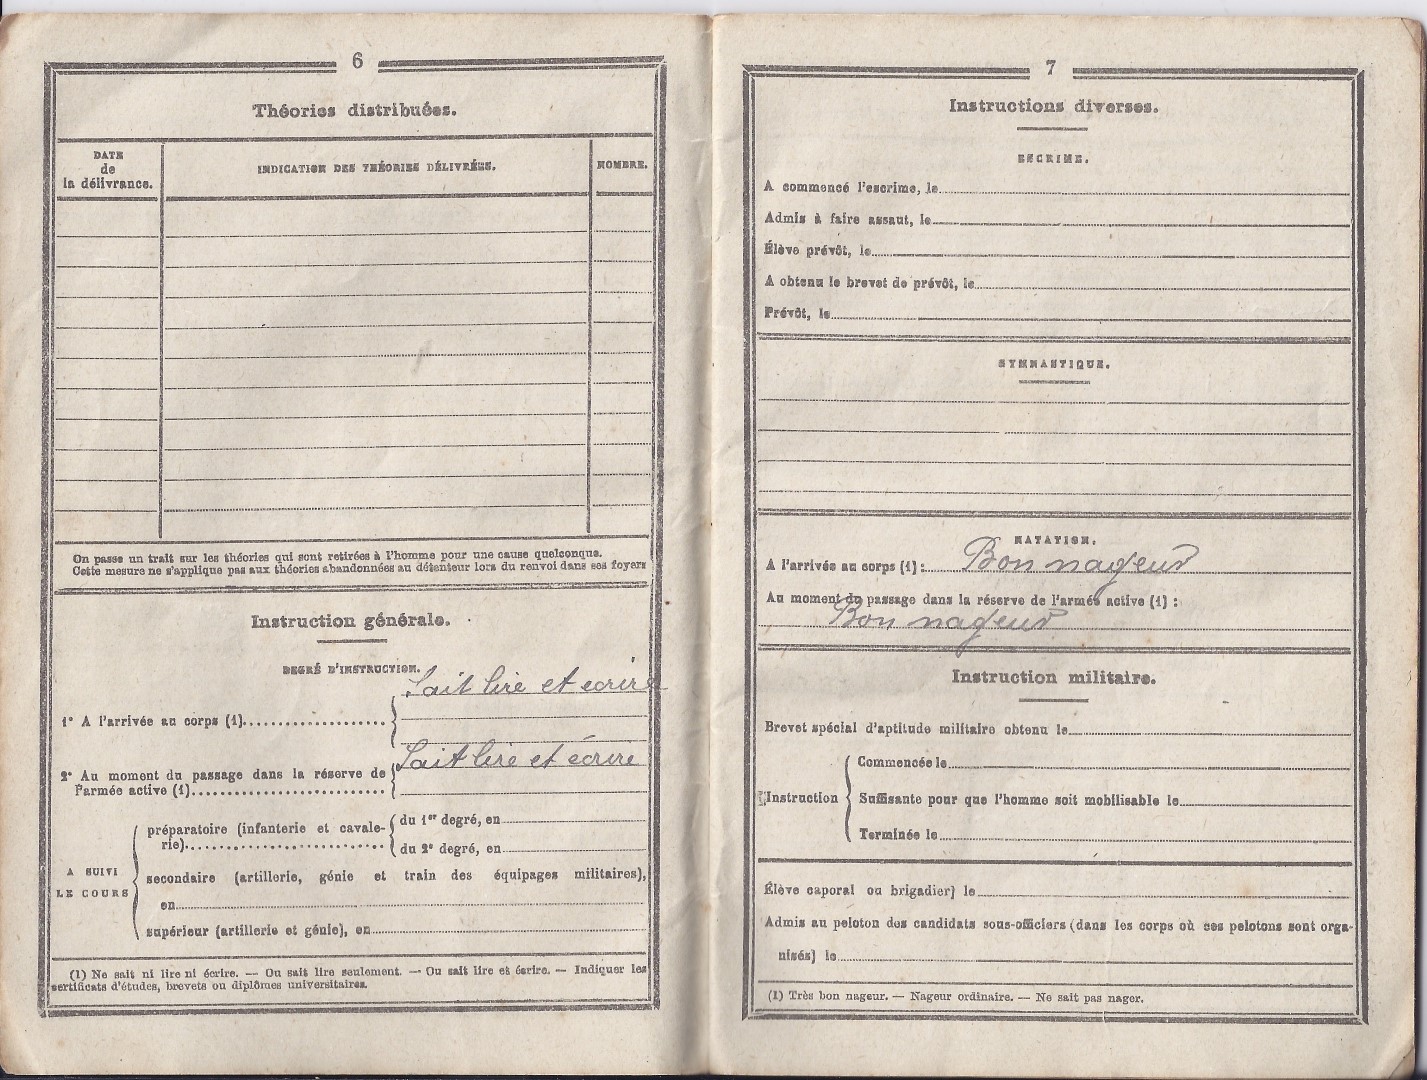 6
Théories distribuées.
DATE
de
la délivrance.
INDICATION DES THÉORIES DÉLIVRÉES.
NOMBRE.
On passe un trait sur les théories qui sont retirées à l'homme pour une cause quelconque.
Cette mesure ne s'applique pas aux théories abandonnées au détenteur lors du renvoi dans ses foyers
Instruction générale.
DEGRÉ D'INSTRUCTION.
Sait lire et ecrire
1° A l'arrivée au corps (1)
Sait lire et écrire
2° Au moment du passage dans la réserve de
l'armée active (1)
A SUIVI
LE COURS
préparatoire (infanterie et cavale-
rie)
du 1er degré, en
du 2e degré, en
secondaire (artillerie, génie et train des équipages militaires),
en
supérieur (artillerie et génie), en
(1) Ne sait ni lire ni écrire. — Ou sait lire seulement. — Ou sait lire et écrire. — Indiquer les
certificats d'études, brevets ou diplômes universitaires.
7
Instructions diverses.
ESCRIME.
A commencé l'escrime, le
Admis à faire assaut, le
Élève prévôt, le
A obtenu le brevet de prévôt, le
Prévôt, le
GYMNASTIQUE.
NATATION.
A l'arrivée au corps (1) : Bon nageur
Au moment du passage dans la réserve de l'armée active (1) :
Bon nageur
Instruction militaire.
Brevet spécial d'aptitude militaire obtenu le
Instruction
Commencée le
Suffisante pour que l'homme soit mobilisable le
Terminée le
Élève caporal ou brigadier) le
Admis au peloton des candidats sous-officiers (dans les corps où ces pelotons sont orga-
nisés) le
(1) Très bon nageur. — Nageur ordinaire. — Ne sait pas nager.